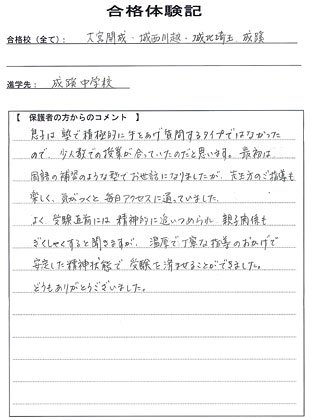 合格体験記
合格校（全て）： 大宮開成・城西川越・城北埼玉 成蹊
進学先： 成蹊中学校
【 保護者の方からのコメント 】
息子は塾で積極的に手をあげ質問するタイプではなかった
ので、少人数での授業が合っていたのだと思います。最初は
国語の補習のような塾でお世話になりましたが、先生方のご指導も
楽しく、気がつくと毎日アクセスに通っていました。
よく、受験直前には精神的に追いつめられ、親子関係も
ぎくしゃくすると聞きますが、温厚で丁寧な指導のおかげで
安定した精神状態で受験を済ませることができました。
どうもありがとうございました。